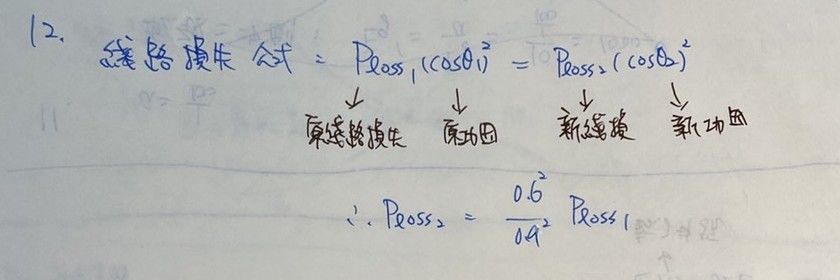 12.
綫路損失 公式 = Ploss₁(cosθ₁)² = Ploss₂(cosθ₂)²
↓ ↓ ↓ ↓
原綫路損失 原功因 新綫損 新功因
∴ Ploss₂ = 0.6² / 0.9² Ploss₁